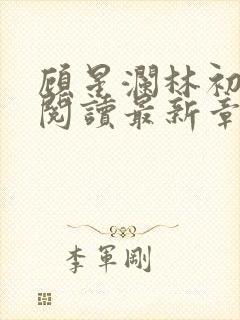 顧星瀾林初
閱讀最新章
李軍剛